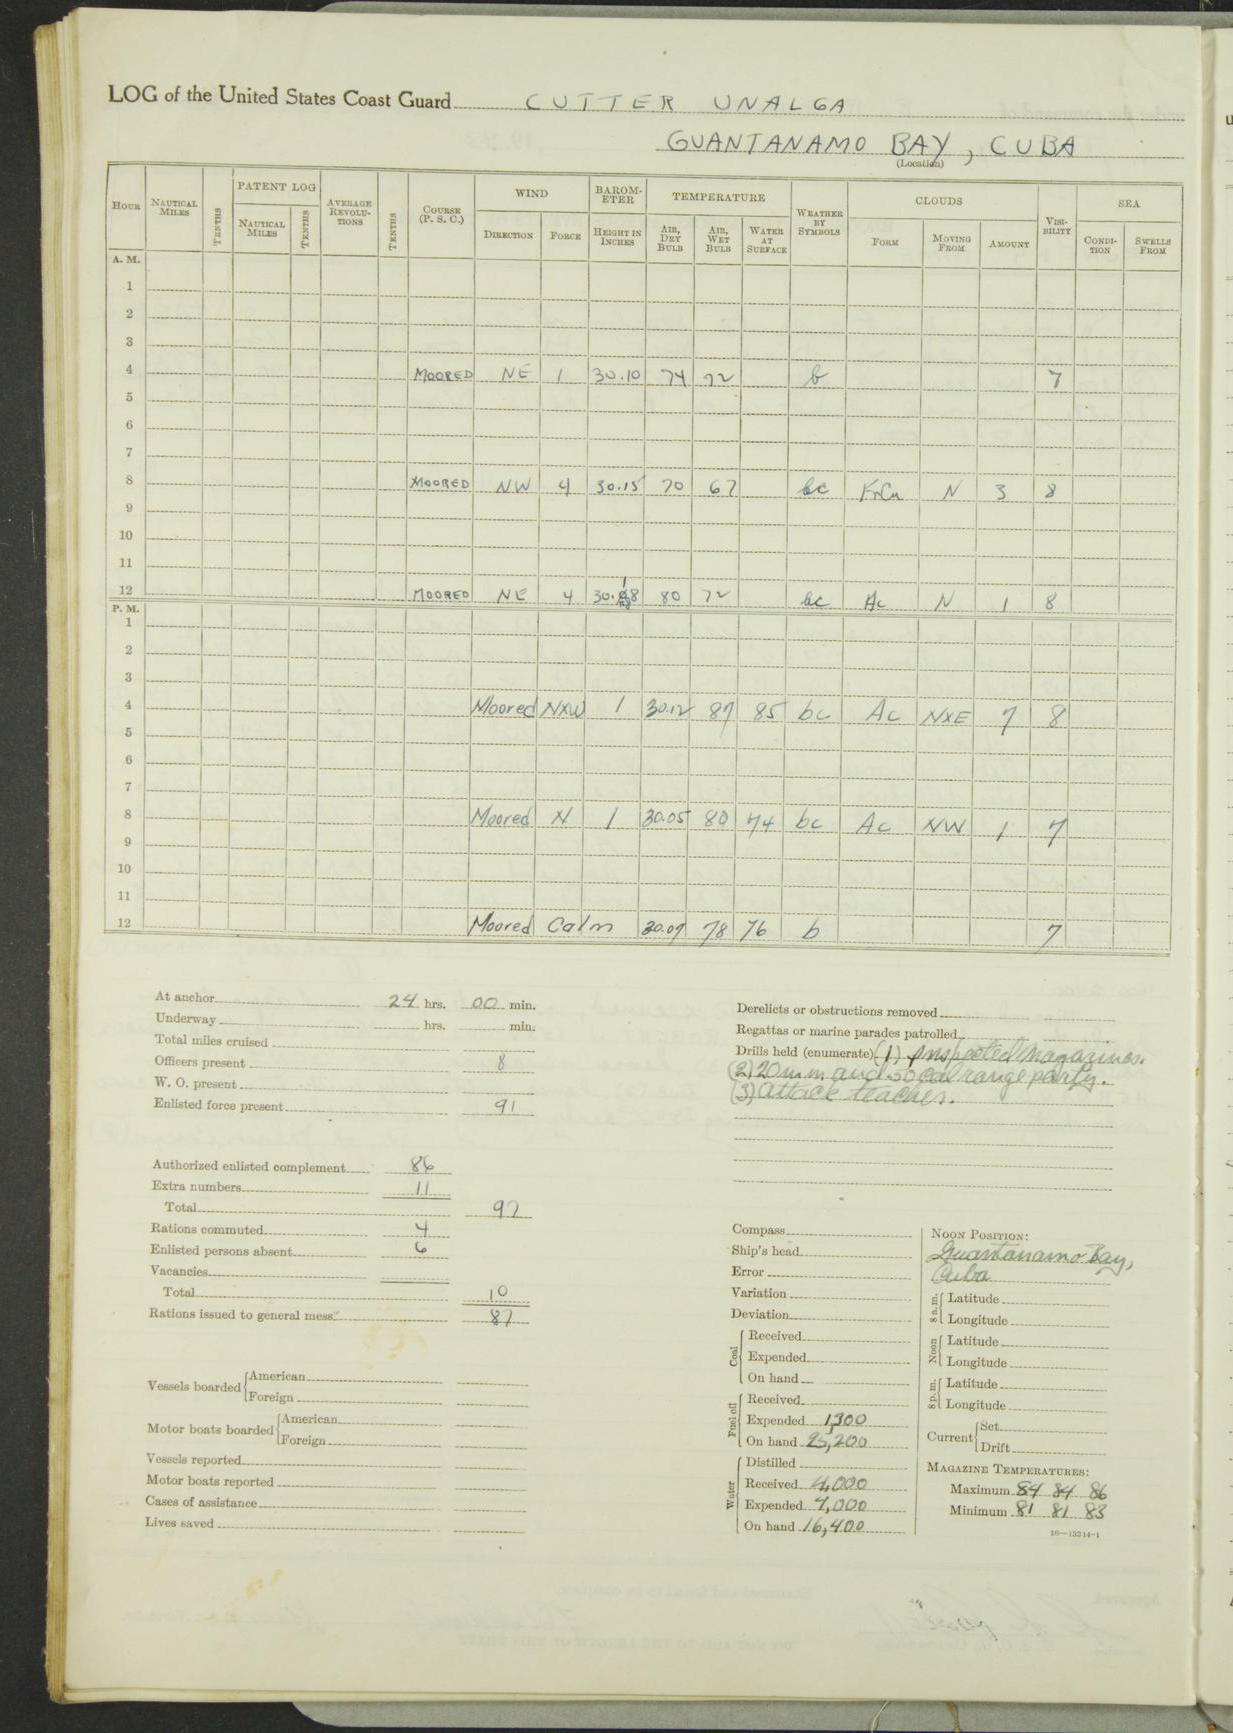 LOG of the United States Coast Guard CUTTER UNALGA
GUANTANAMO BAY, CUBA
(Location)
HOUR NAUTICAL MILES TENTHS PATENT LOG NAUTICAL MILES TENTHS AVERAGE REVOLUTIONS TENTHS COURSE (P. S. C.) WIND DIRECTION FORCE BAROMETER HEIGHT IN INCHES TEMPERATURE AIR, DRY BULB AIR, WET BULB WATER AT SURFACE WEATHER BY SYMBOLS CLOUDS FORM MOVING FROM AMOUNT VISIBILITY SEA CONDITION SWELLS FROM
A. M.
1
2
3
4 MOORED NE 1 30.10 74 72 b 7
5
6
7
8 MOORED NW 4 30.15 70 67 bc FrCu N 3 8
9
10
11
12 MOORED NE 4 80 72 bc Ac N 1 8
P. M.
1
2
3
4 Moored NXW 1 30.12 87 85 bc Ac NXE 7 8
5
6
7
8 Moored N 1 30.05 80 74 bc Ac NW 1 7
9
10
11
12 Moored Calm 30.07 78 76 b 7
At anchor 24 hrs. 00 min.
Underway hrs. min.
Total miles cruised
Officers present 8
W. O. present
Enlisted force present 91
Authorized enlisted complement 86
Extra numbers 11
Total 97
Rations commuted 4
Enlisted persons absent 6
Vacancies
Total 10
Rations issued to general mess 87
Vessels boarded American
Foreign
Motor boats boarded American
Foreign
Vessels reported
Motor boats reported
Cases of assistance
Lives saved
Derelicts or obstructions removed
Regattas or marine parades patrolled
Drills held (enumerate) (1) Inspected Magazines.
(2) 20 m.m. and .50 cal range party.
(3) Attack teacher.
Compass
Ship's head
Error
Variation
Deviation
Coal Received
Expended
On hand
Fuel oil Received
Expended 1,300
On hand 25,200
Water Distilled
Received 4,000
Expended 4,000
On hand 16,400
NOON POSITION:
Guantanamo Bay,
Cuba
8 a.m. Latitude
Longitude
Noon Latitude
Longitude
8 p.m. Latitude
Longitude
Current Set
Drift
MAGAZINE TEMPERATURES:
Maximum 84 84 86
Minimum 81 81 83
16—13314-1